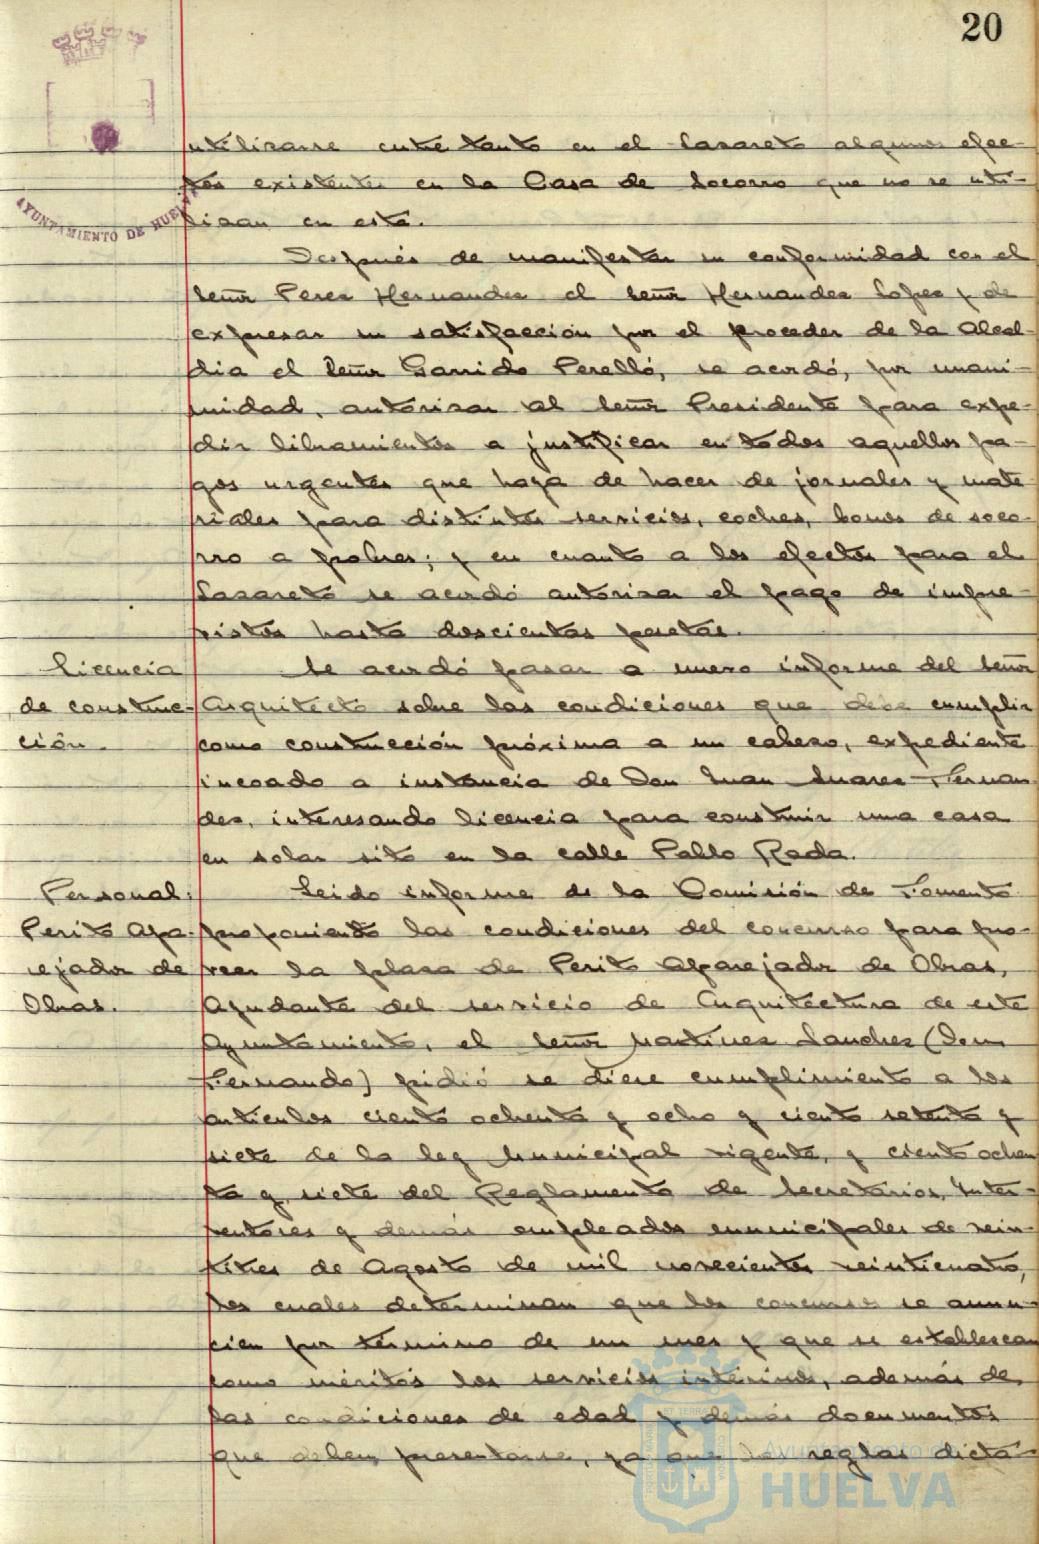 20
AYUNTAMIENTO DE HUELVA
utilizarse entre tanto en el Lazareto algunos efec-
tos existentes en la Casa de Socorro que no se uti-
lizan en esta.
Después de manifestar su conformidad con el
Señor Perez Hernandez el Señor Hernandez Lopez y de
expresar su satisfacción por el proceder de la Alcal-
dia el Señor Garrido Perelló, se acordó, por unani-
midad, autorizar al Señor Presidente para expe-
dir libramientos a justificar en todos aquellos pa-
gos urgentes que haya de hacer de jornales y mate-
riales para distintos servicios, coches, bonos de soco-
rro a pobres; y en cuanto a los efectos para el
Lazareto se acordó autorizar el pago de impre-
vistos hasta doscientas pesetas.
Licencia
de construc-
ción.
Se acordó pasar a nuevo informe del Señor
Arquitecto sobre las condiciones que debe cumplir
como construcción próxima a un cabezo, expediente
incoado a instancia de Don Juan Suarez Fernan-
dez, interesando licencia para construir una casa
en solar sito en la calle Pablo Rada.
Personal:
Perito Apa-
rejador de
Obras.
Leido informe de la Comisión de Fomento
proponiendo las condiciones del concurso para pro-
veer la plaza de Perito Aparejador de Obras,
Ayudante del servicio de Arquitectura de este
Ayuntamiento, el Señor Martinez Sanchez (Don
Fernando) pidió se diese cumplimiento a los
articulos ciento ochenta y ocho y ciento setenta y
siete de la ley Municipal vigente, y ciento ochen
ta y siete del Reglamento de Secretarios, Inter-
ventores y demás empleados municipales de vein-
titres de Agosto de mil novecientos veinticuatro,
los cuales determinan que los concursos se anun-
cien por término de un mes y que se establezcan
como méritos los servicios interinos, además de
las condiciones de edad y demás documentos
que deben presentarse, ya que las reglas dicta-
Ayuntamiento de
HUELVA